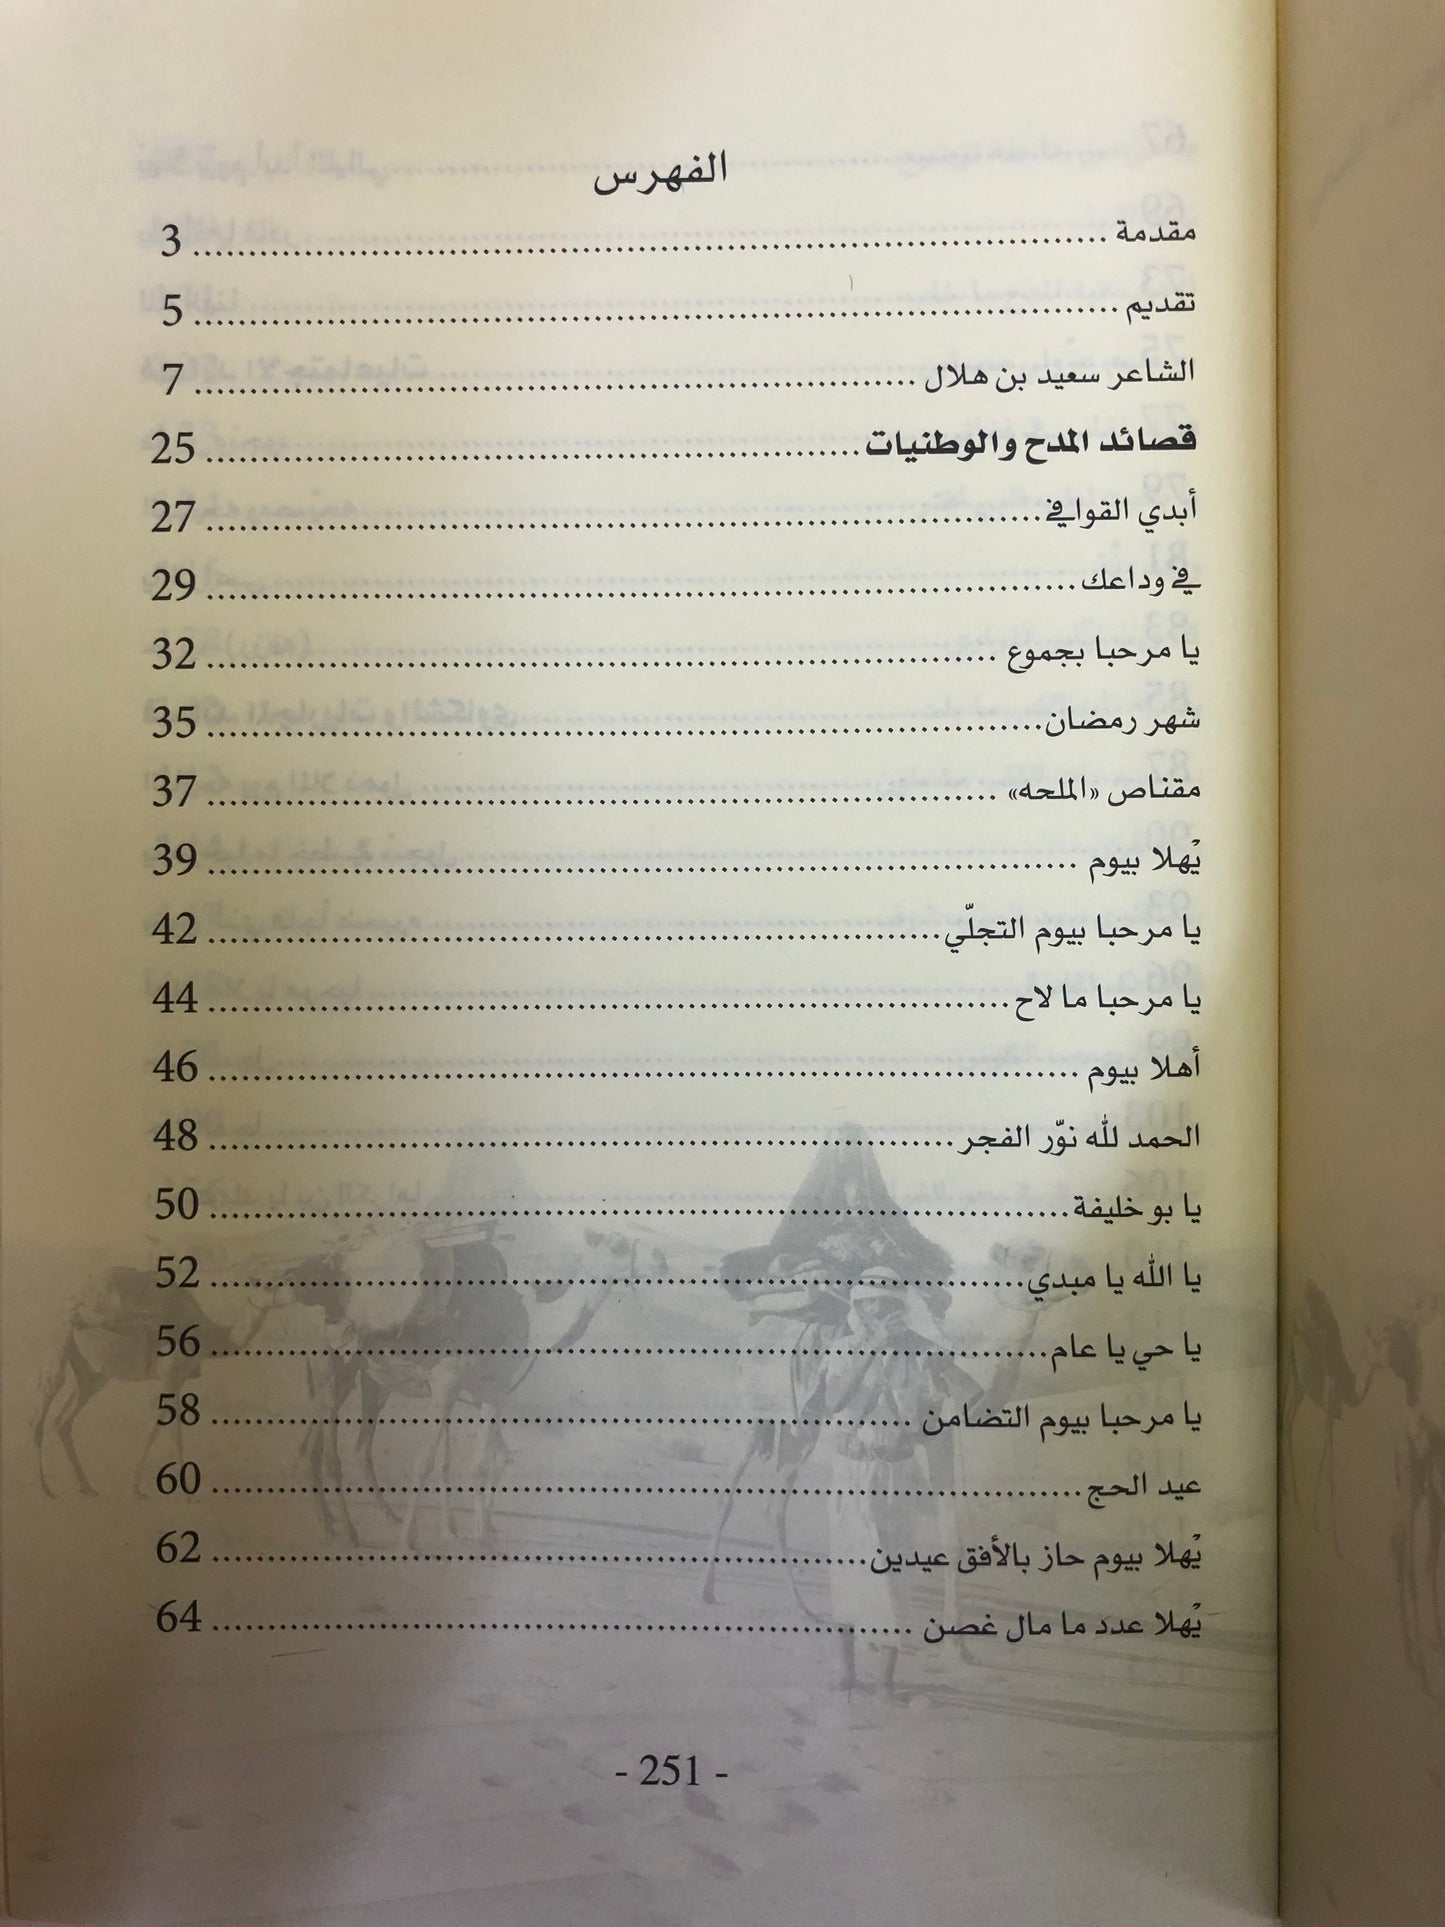 الفهرس
مقدمة ........................................ 3
تقديم ........................................ 5
الشاعر سعيد بن هلال ........................................ 7
قصائد المدح والوطنيات ........................................ 25
أبدي القوافي ........................................ 27
في وداعك ........................................ 29
يا مرحبا بجموع ........................................ 32
شهر رمضان ........................................ 35
مقناص «الملحه» ........................................ 37
يْهلا بيوم ........................................ 39
يا مرحبا بيوم التجلّي ........................................ 42
يا مرحبا ما لاح ........................................ 44
أهلا بيوم ........................................ 46
الحمد لله نوّر الفجر ........................................ 48
يا بو خليفة ........................................ 50
يا الله يا مبدي ........................................ 52
يا حي يا عام ........................................ 56
يا مرحبا بيوم التضامن ........................................ 58
عيد الحج ........................................ 60
يْهلا بيوم حاز بالأفق عيدين ........................................ 62
يْهلا عدد ما مال غصن ........................................ 64
- 251 -